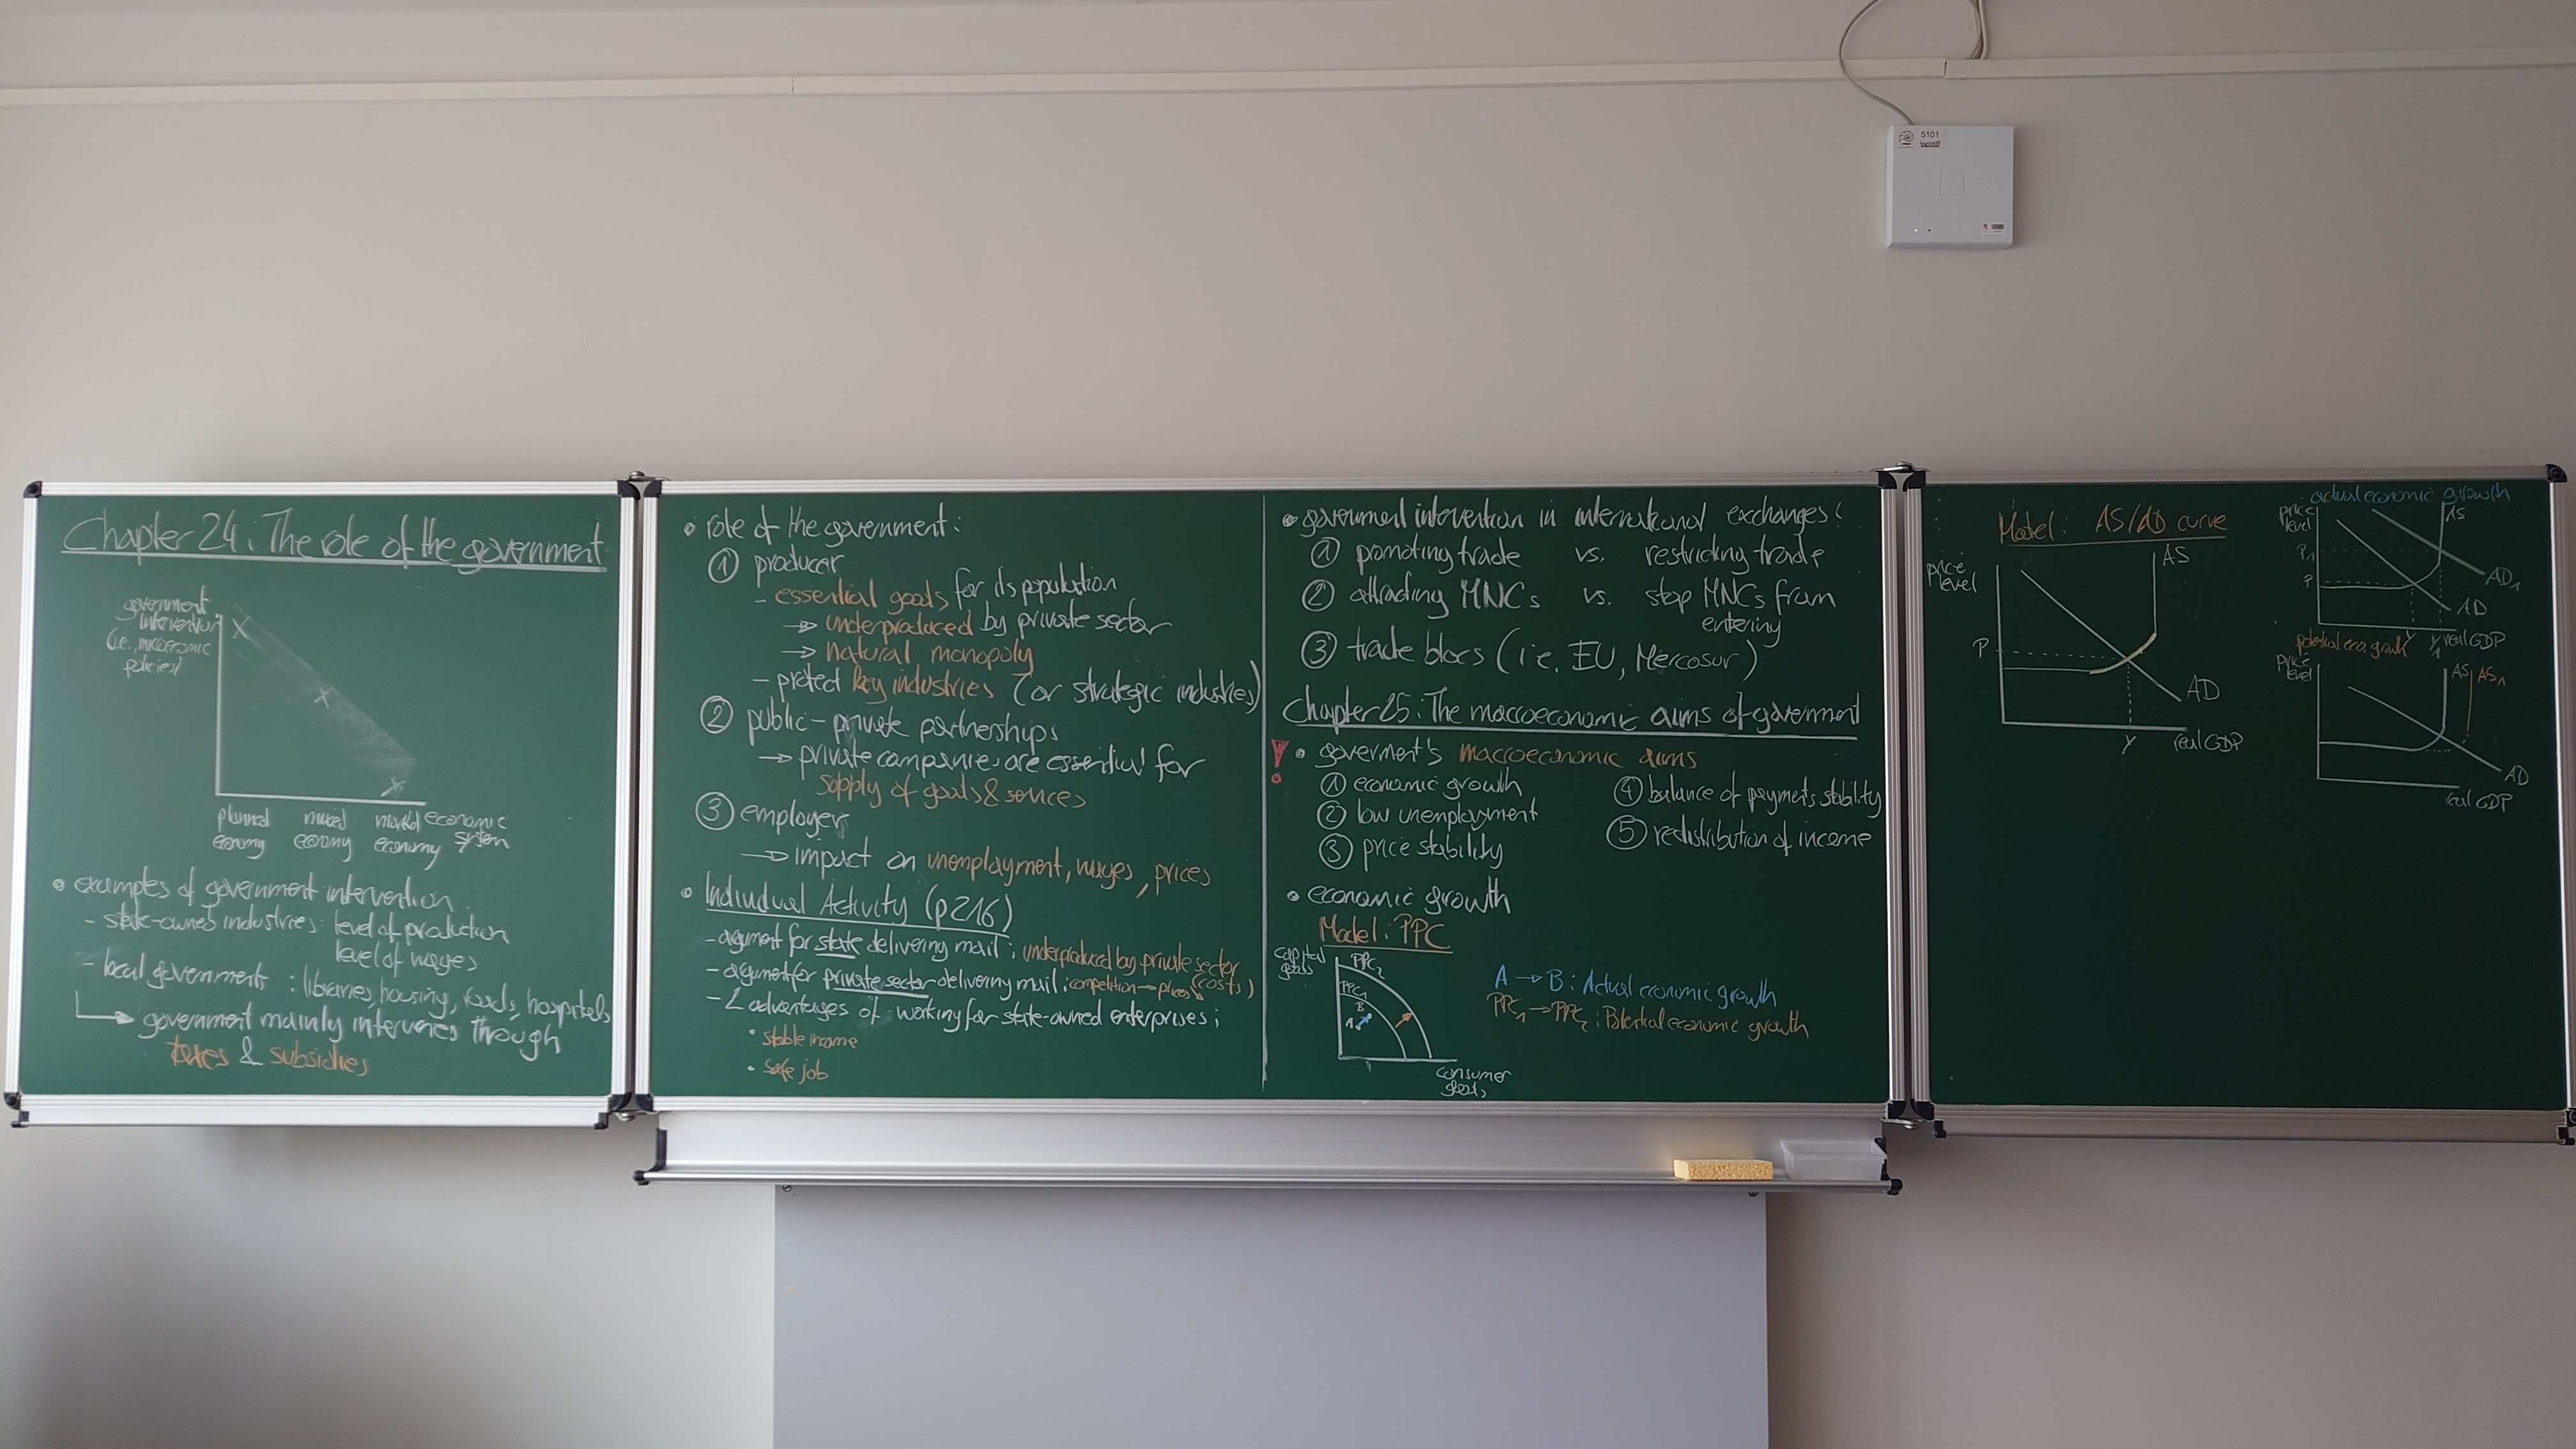 Chapter 24: The role of the government
government
intervention
(i.e., microeconomic
policies)
X
X
X
planned
economy
mixed
economy
market
economy
economic
system
• examples of government intervention:
- state-owned industries: level of production
level of wages
- local government : libraries, housing, roads, hospitals
→ government mainly intervenes through
taxes & subsidies
• role of the government:
① producer
- essential goods for its population
→ underproduced by private sector
→ natural monopoly
- protect key industries (or strategic industries)
② public-private partnerships
→ private companies are essential for
supply of goods & services
③ employer
→ impact on unemployment, wages, prices
• Individual Activity (p 216)
- argument for state delivering mail: underproduced by private sector
- argument for private sector delivering mail: competition → prices (costs)
- 2 advantages of working for state-owned enterprises:
• stable income
• safe job
• government intervention in international exchanges:
① promoting trade vs. restricting trade
② attracting MNCs vs. stop MNCs from
entering
③ trade blocs (i.e. EU, Mercosur)
Chapter 25: The macroeconomic aims of government
! • goverment's macroeconomic aims
① economic growth
② low unemployment
③ price stability
④ balance of payments stability
⑤ redistribution of income
• economic growth
Model: PPC
capital
goods
PPC₂
PPC₁
B
A
consumer
goods
A → B: Actual economic growth
PPC₁ → PPC₂: Potential economic growth
Model: AS/AD curve
price
level
AS
P
AD
Y
real GDP
actual economic growth
price
level
AS
P₁
P
AD₁
AD
Y
Y₁
real GDP
potential eco. growth
price
level
AS
AS₁
AD
real GDP
5101